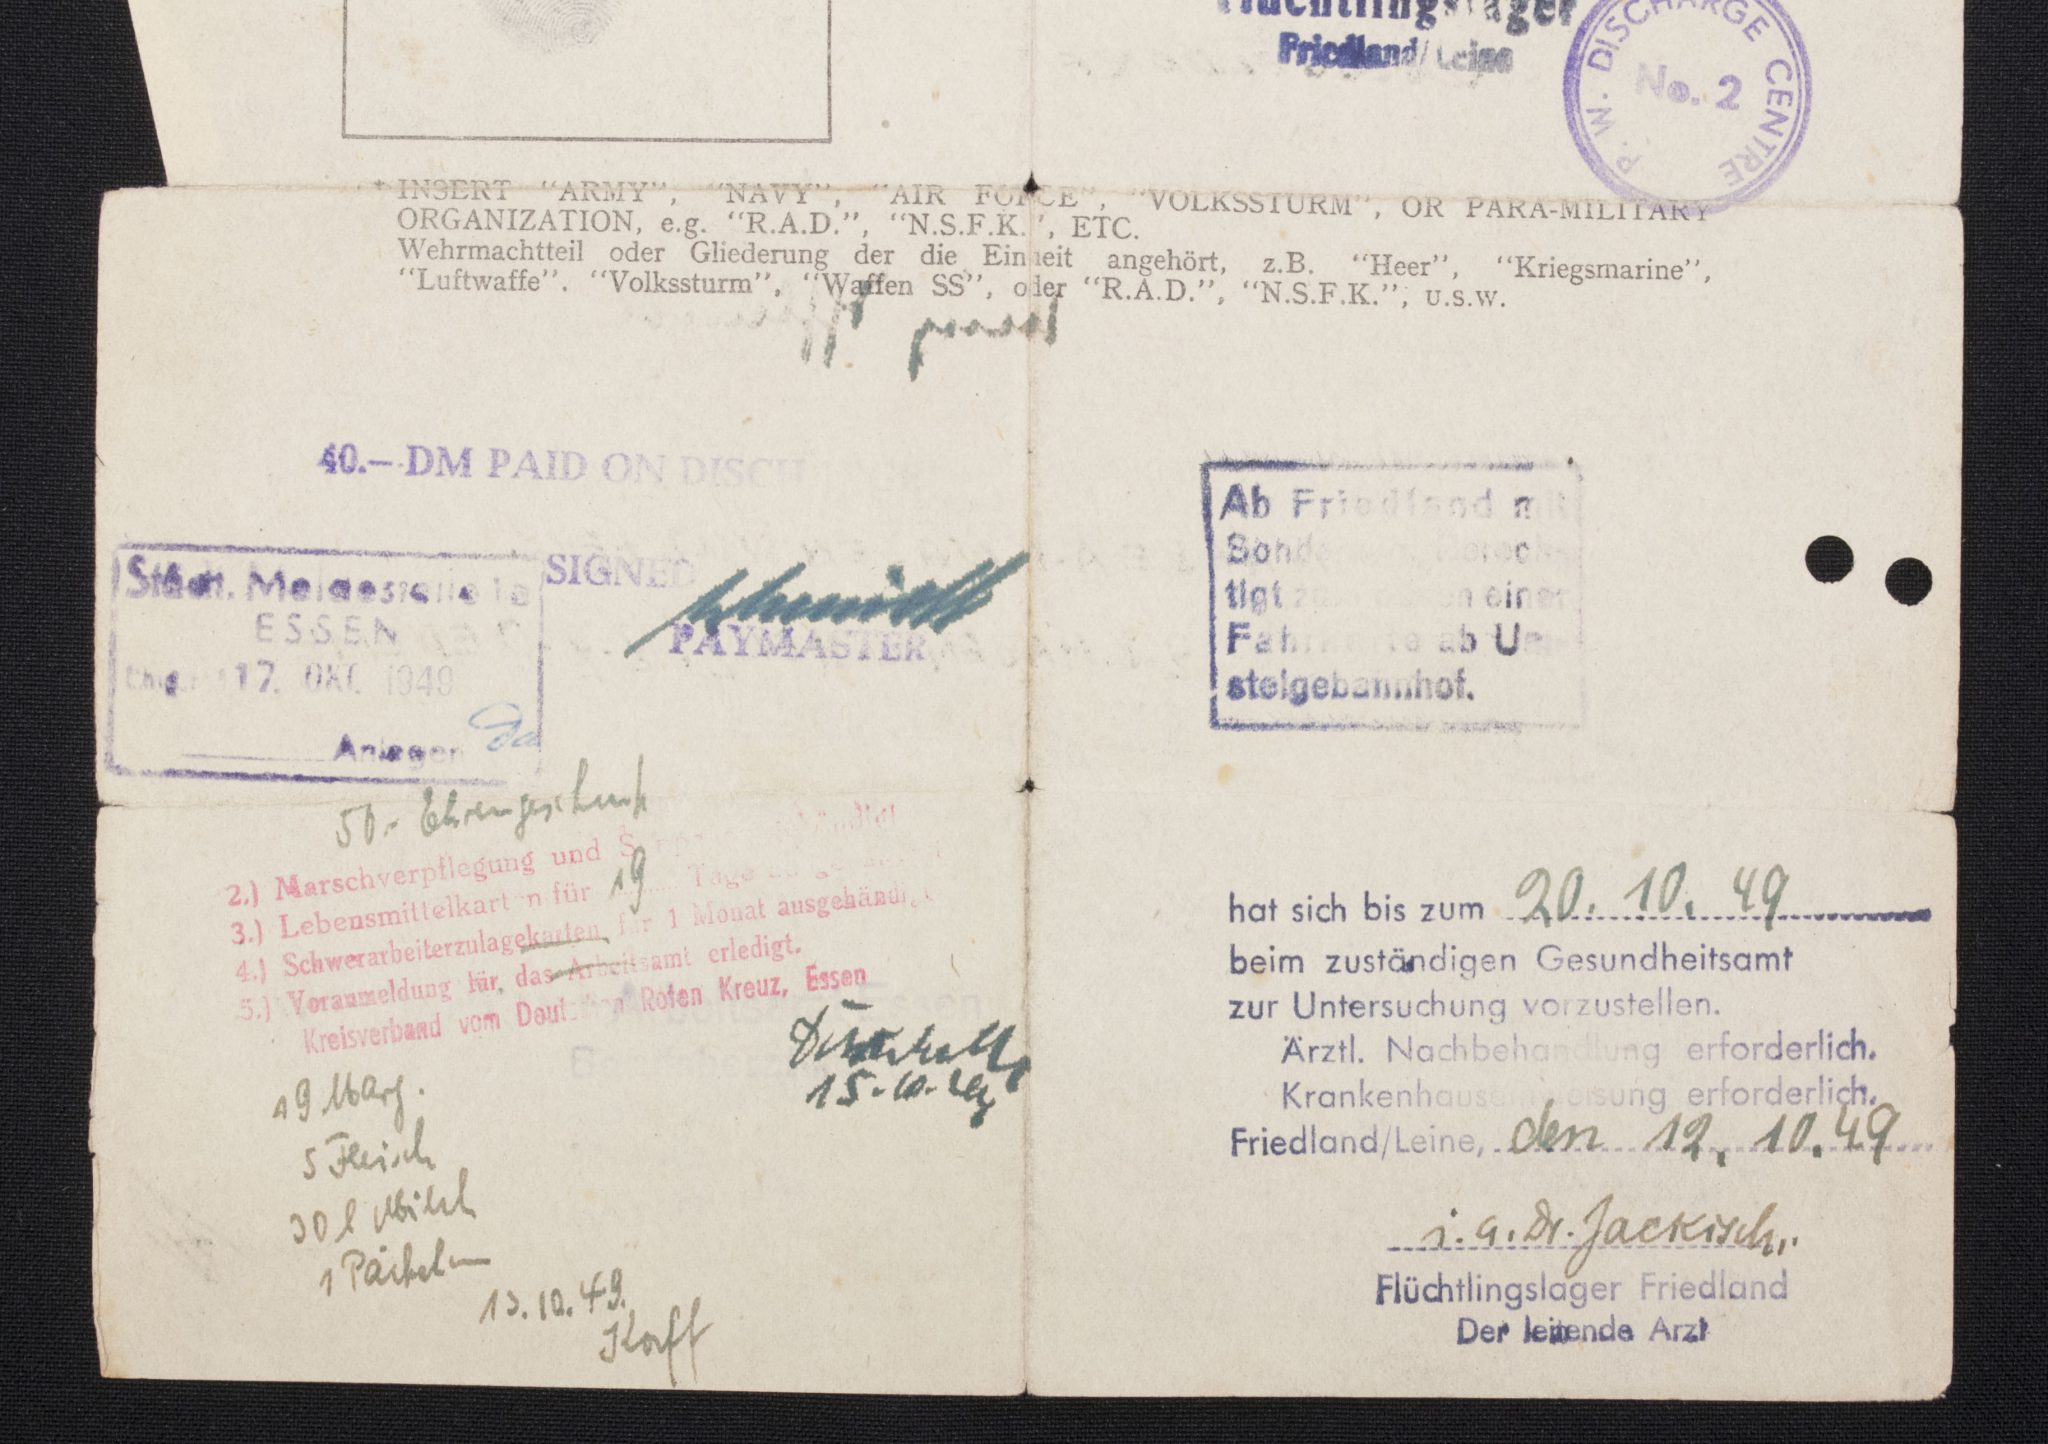 Flüchtlingslager
Friedland/Leine
P.W. DISCHARGE CENTRE
No. 2
* INSERT “ARMY”, “NAVY”, “AIR FORCE”, “VOLKSSTURM”, OR PARA-MILITARY
ORGANIZATION, e.g. “R.A.D.”, “N.S.F.K.”, ETC.
Wehrmachtteil oder Gliederung der die Einheit angehört, z.B. “Heer”, “Kriegsmarine”,
“Luftwaffe”. “Volkssturm”, “Waffen SS”, oder “R.A.D.”, “N.S.F.K.”, U.S.W.
40.— DM PAID ON DISCH
SIGNED
PAYMASTER
Städt. Meldestelle
ESSEN
17. OKT. 1949
Anlagen
Ab Friedland mit
tigt einer
ab Um
steigebahnhof.
50.- Ehrengeschenk
2.) Marschverpflegung und
3.) Lebensmittelkarten für 19 Tage
4.) Schwerarbeiterzulagekarten für 1 Monat ausgehändigt
5.) Voranmeldung für das Arbeitsamt erledigt.
Kreisverband vom Deutschen Roten Kreuz, Essen
15.10.49
19 Marg.
5 Fleisch
30 l Milch
1 Päckchen
13.10.49.
Korff
hat sich bis zum 20. 10. 49
beim zuständigen Gesundheitsamt
zur Untersuchung vorzustellen.
Ärztl. Nachbehandlung erforderlich.
Krankenhauseinweisung erforderlich.
Friedland/Leine, den 12. 10. 49
i. a. Dr. Jackisch
Flüchtlingslager Friedland
Der leitende Arzt